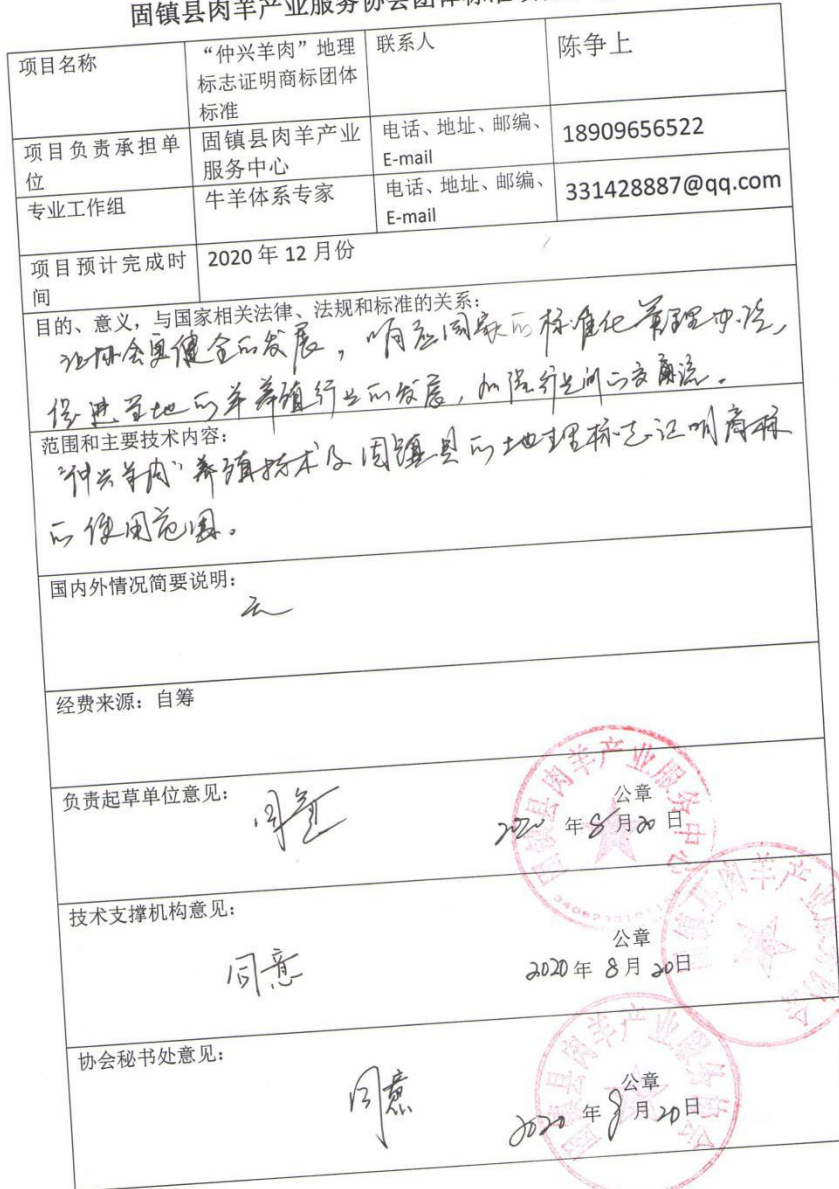 固镇县肉羊产业服务协会团体标准
项目名称
“仲兴羊肉”地理
标志证明商标团体
标准
联系人
陈争上
项目负责承担单
位
固镇县肉羊产业
服务中心
电话、地址、邮编、
E-mail
18909656522
专业工作组
牛羊体系专家
电话、地址、邮编、
E-mail
331428887@qq.com
项目预计完成时
间
2020年12月份
目的、意义，与国家相关法律、法规和标准的关系：
让协会更健全的发展，响应国家的标准化管理办法，
促进当地的羊养殖行业的发展，加强行业间的交流。
范围和主要技术内容：
“仲兴羊肉”养殖技术及固镇县的地理标志证明商标
的使用范围。
国内外情况简要说明：
无
经费来源：自筹
负责起草单位意见：
同意
公章
2020 年 8 月 20 日
固镇县肉羊产业服务中心
技术支撑机构意见：
同意
公章
2020 年 8 月 20 日
固镇县肉羊产业服务协会
协会秘书处意见：
同意
公章
2020 年 8 月 20 日
固镇县肉羊产业服务协会